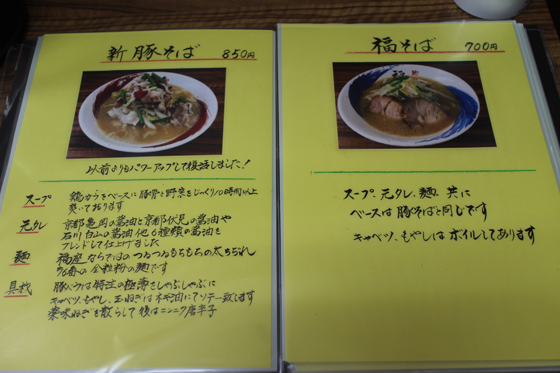 新 豚そば 850円
以前よりもパワーアップして復活しました!
スープ 鶏ガラをベースに豚骨と野菜をじっくり10時間以上
炊いております
元タレ 京都亀岡の醤油と京都伏見の醤油や
石川白山の醤油他6種類の醤油を
ブレンドして仕上げました
麺 福座ならではのつるつるもちもちの太ちぢれ
の全粒粉の麺です
具材 豚バラは特注の極薄をしゃぶしゃぶに
キャベツ、もやし、玉ねぎは にてソテー致します
薬味ねぎを散らして後はニンニク唐辛子
福そば 700円
スープ、元タレ、麺、共に
ベースは豚そばと同じです
キャベツ、もやしはボイルしてあります